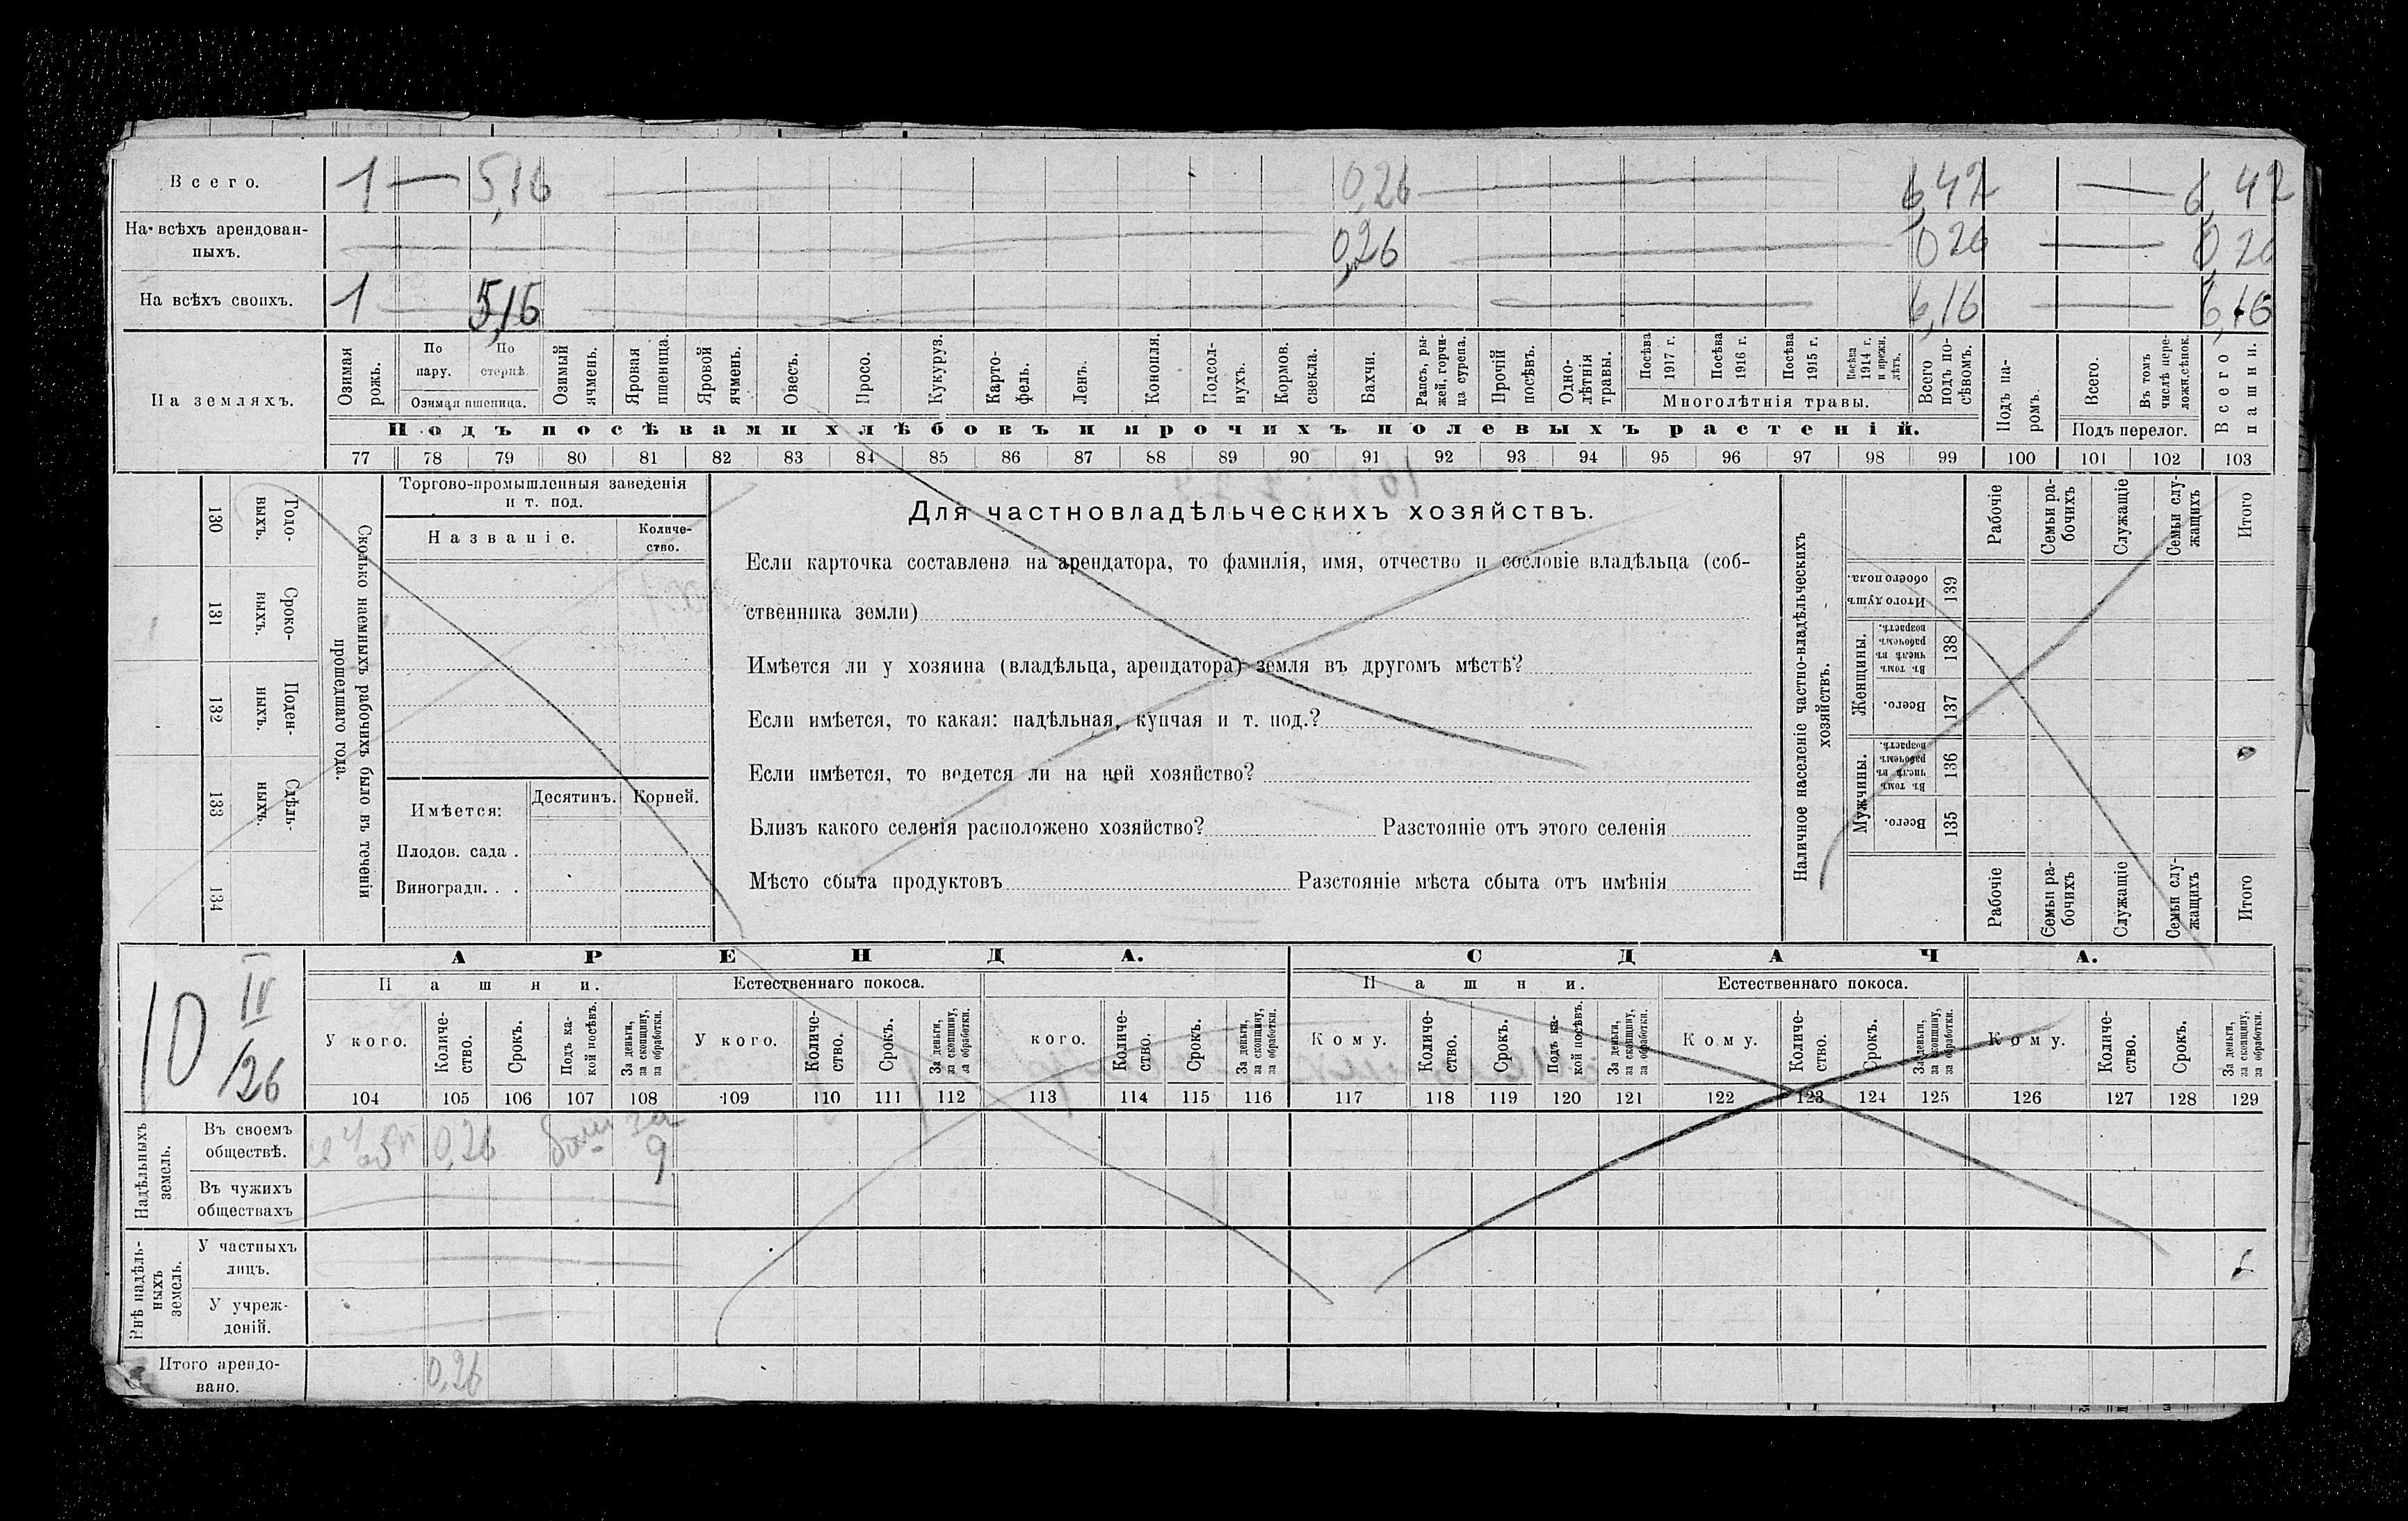 Всего. 1 — 5,16 — 0,26 — 6,42 — 6,42
На всѣхъ арендован-
ныхъ. 0,26 — 0 26 — 0,26
На всѣхъ своихъ. 1 5,16 — 6,16 — 6,16
На земляхъ.
Озимая рожь.
По пару.
По стернѣ.
Озимая пшеница.
Озимый ячмень.
Яровая пшеница.
Яровой ячмень.
Овесъ.
Просо.
Кукуруз.
Карто-
фель.
Ленъ.
Конопля.
Подсол-
нухъ.
Кормов. свекла.
Бахчи.
Рапсъ, ры-
жей, горчи-
ца сурепа.
Прочій посѣвъ.
Одно-
лѣтнія травы.
Посѣва 1917 г.
Посѣва 1916 г.
Посѣва 1915 г.
Посѣва 1914 г. и прежн. лѣтъ.
Многолѣтнія травы.
Всего подъ по-
сѣвомъ.
Подъ па-
ромъ.
Всего.
Въ томъ числѣ пере-
ложн. сѣнок.
Подъ перелог.
Всего пашни.
Подъ посѣвами хлѣбовъ и прочихъ полевыхъ растеній.
77 78 79 80 81 82 83 84 85 86 87 88 89 90 91 92 93 94 95 96 97 98 99 100 101 102 103
130 Годо-
выхъ.
131 Сроко-
выхъ.
132 Поден-
ныхъ.
133 Сдѣль-
ныхъ.
134
Сколько наемныхъ рабочихъ было въ теченіи
прошедшаго года.
Торгово-промышленныя заведенія
и т. под.
Названіе.
Количе-
ство.
Имѣется: Десятинъ. Корней.
Плодов. сада .
Виноградн. . .
Для частновладѣльческихъ хозяйствъ.
Если карточка составлена на арендатора, то фамилія, имя, отчество и сословіе владѣльца (соб-
ственника земли)
Имѣется ли у хозяина (владѣльца, арендатора) земля въ другомъ мѣстѣ?
Если имѣется, то какая: надѣльная, купчая и т. под.?
Если имѣется, то ведется ли на ней хозяйство?
Близъ какого селенія расположено хозяйство? Разстояніе отъ этого селенія
Мѣсто сбыта продуктовъ Разстояніе мѣста сбыта отъ имѣнія
Наличное населеніе частно-владѣльческихъ
хозяйствъ.
Рабочіе
Семьи ра-
бочихъ
Служащіе
Семьи слу-
жащихъ
Итого
Итого душъ обоего пола. 139
Женщины.
Въ томъ числѣ въ рабочемъ возрастѣ. 138
Всего. 137
Мужчины.
Въ томъ числѣ въ рабочемъ возрастѣ. 136
Всего. 135
Рабочіе
Семьи ра-
бочихъ
Служащіе
Семьи слу-
жащихъ
Итого
10 IV/26
АРЕНДА.
СДАЧА.
Пашни. Естественнаго покоса. Пашни. Естественнаго покоса.
У кого.
Количе-
ство.
Срокъ.
Подъ ка-
кой посѣвъ.
За деньги, за скопщину, за обработки.
У кого.
Количе-
ство.
Срокъ.
За деньги, за скопщину, за обработки.
кого.
Количе-
ство.
Срокъ.
За деньги, за скопщину, за обработки.
Кому.
Количе-
ство.
Срокъ.
Подъ ка-
кой посѣвъ.
За деньги, за скопщину, за обработки.
Кому.
Количе-
ство.
Срокъ.
За деньги, за скопщину, за обработки.
Кому.
Количе-
ство.
Срокъ.
За деньги, за скопщину, за обработки.
104 105 106 107 108 109 110 111 112 113 114 115 116 117 118 119 120 121 122 123 124 125 126 127 128 129
Надѣльныхъ
земель.
Въ своемъ
обществѣ. 0,26 9
Въ чужихъ
обществахъ
Внѣ надѣль-
ныхъ
земель.
У частныхъ
лицъ.
У учреж-
деній.
Итого арендо-
вано. 0,26